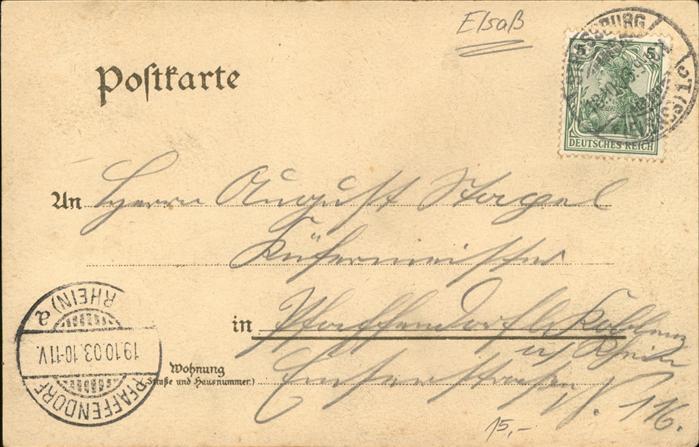 Elsaß
Postkarte
5 5
DEUTSCHES REICH
STRASSBURG
An Herrn August Stagel
Küfermeister
in Pfaffendorf b. Koblenz
a/ Rhein
Wohnung
(Straße und Hausnummer.)
Emserstraße N. 116.
PFAFFENDORF
19.10.03.10-11V.
(RHEIN) a
15,-